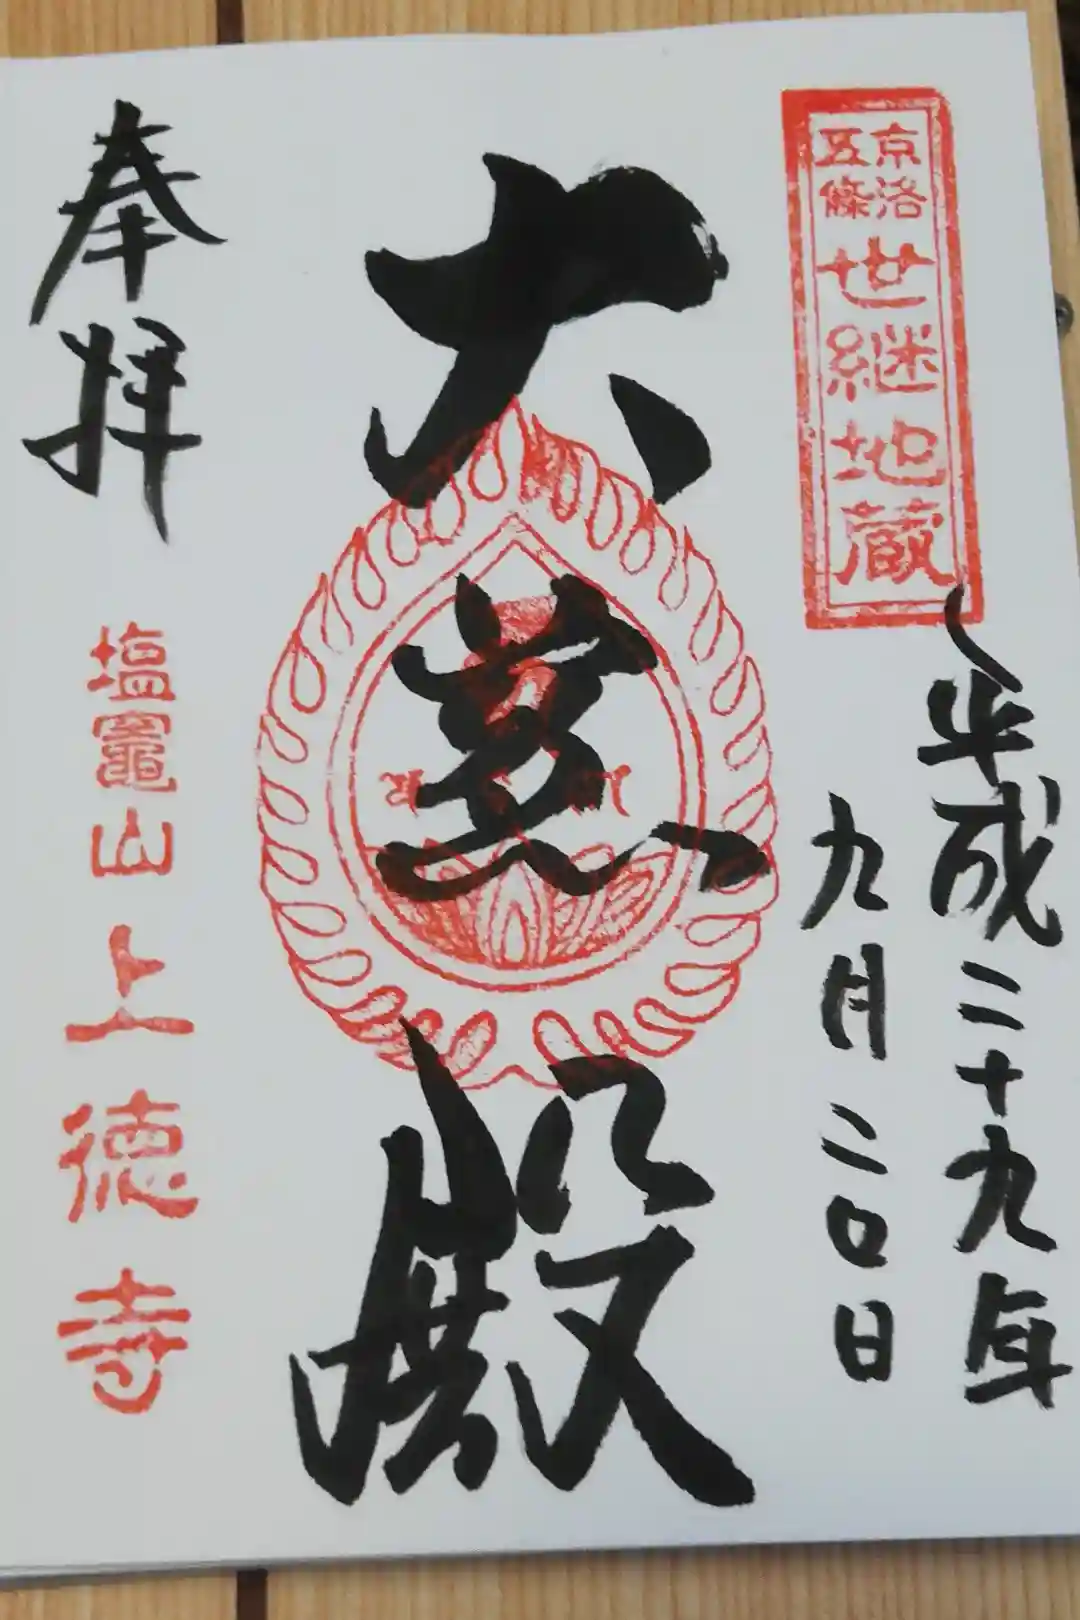 京洛
五條
世継地蔵
平成二十九年
九月二〇日
大悲殿
奉拝
塩竈山
上徳寺